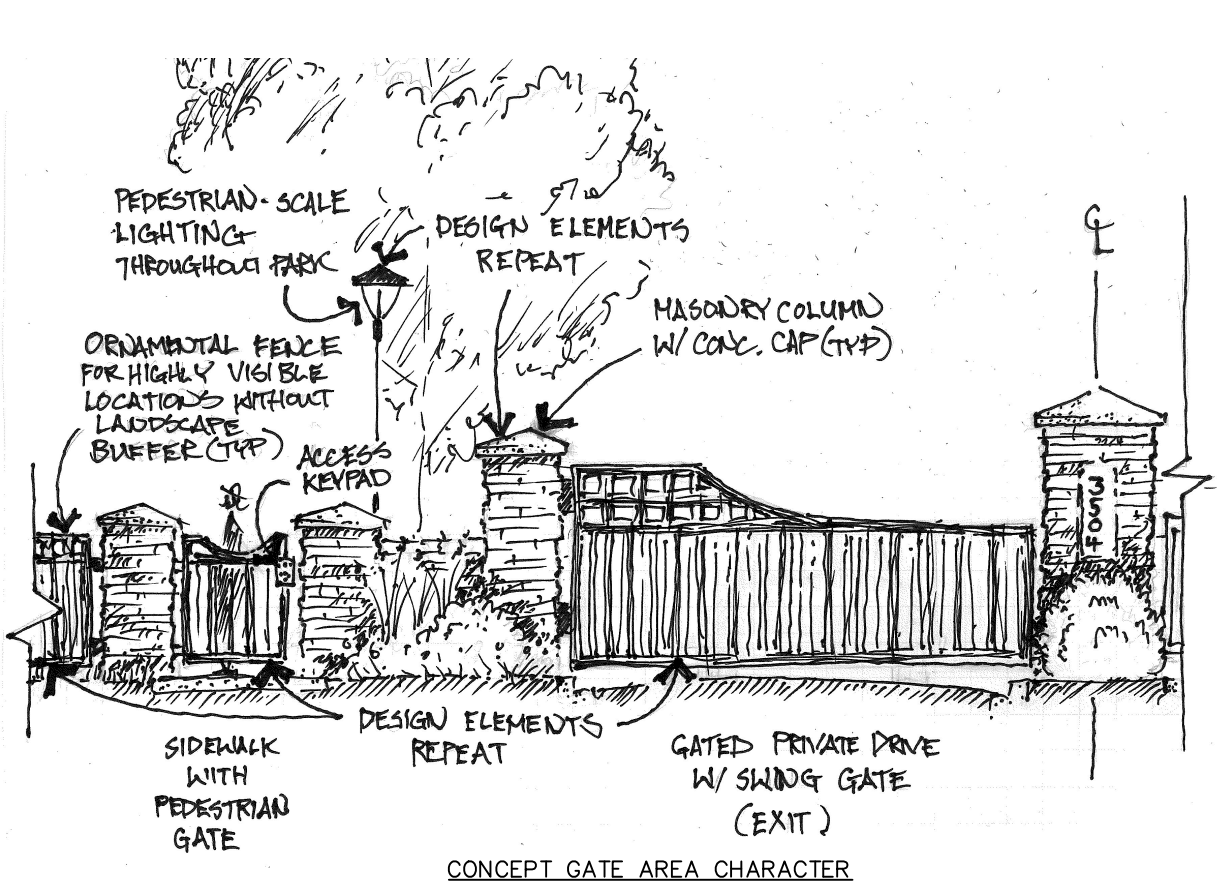 PEDESTRIAN-SCALE
LIGHTING
THROUGHOUT PARK
DESIGN ELEMENTS
REPEAT
MASONRY COLUMN
W/ CONC. CAP (TYP)
ORNAMENTAL FENCE
FOR HIGHLY VISIBLE
LOCATIONS WITHOUT
LANDSCAPE
BUFFER (TYP)
ACCESS
KEYPAD
CL
3504
DESIGN ELEMENTS
REPEAT
SIDEWALK
WITH
PEDESTRIAN
GATE
GATED PRIVATE DRIVE
W/ SWING GATE
(EXIT)
CONCEPT GATE AREA CHARACTER